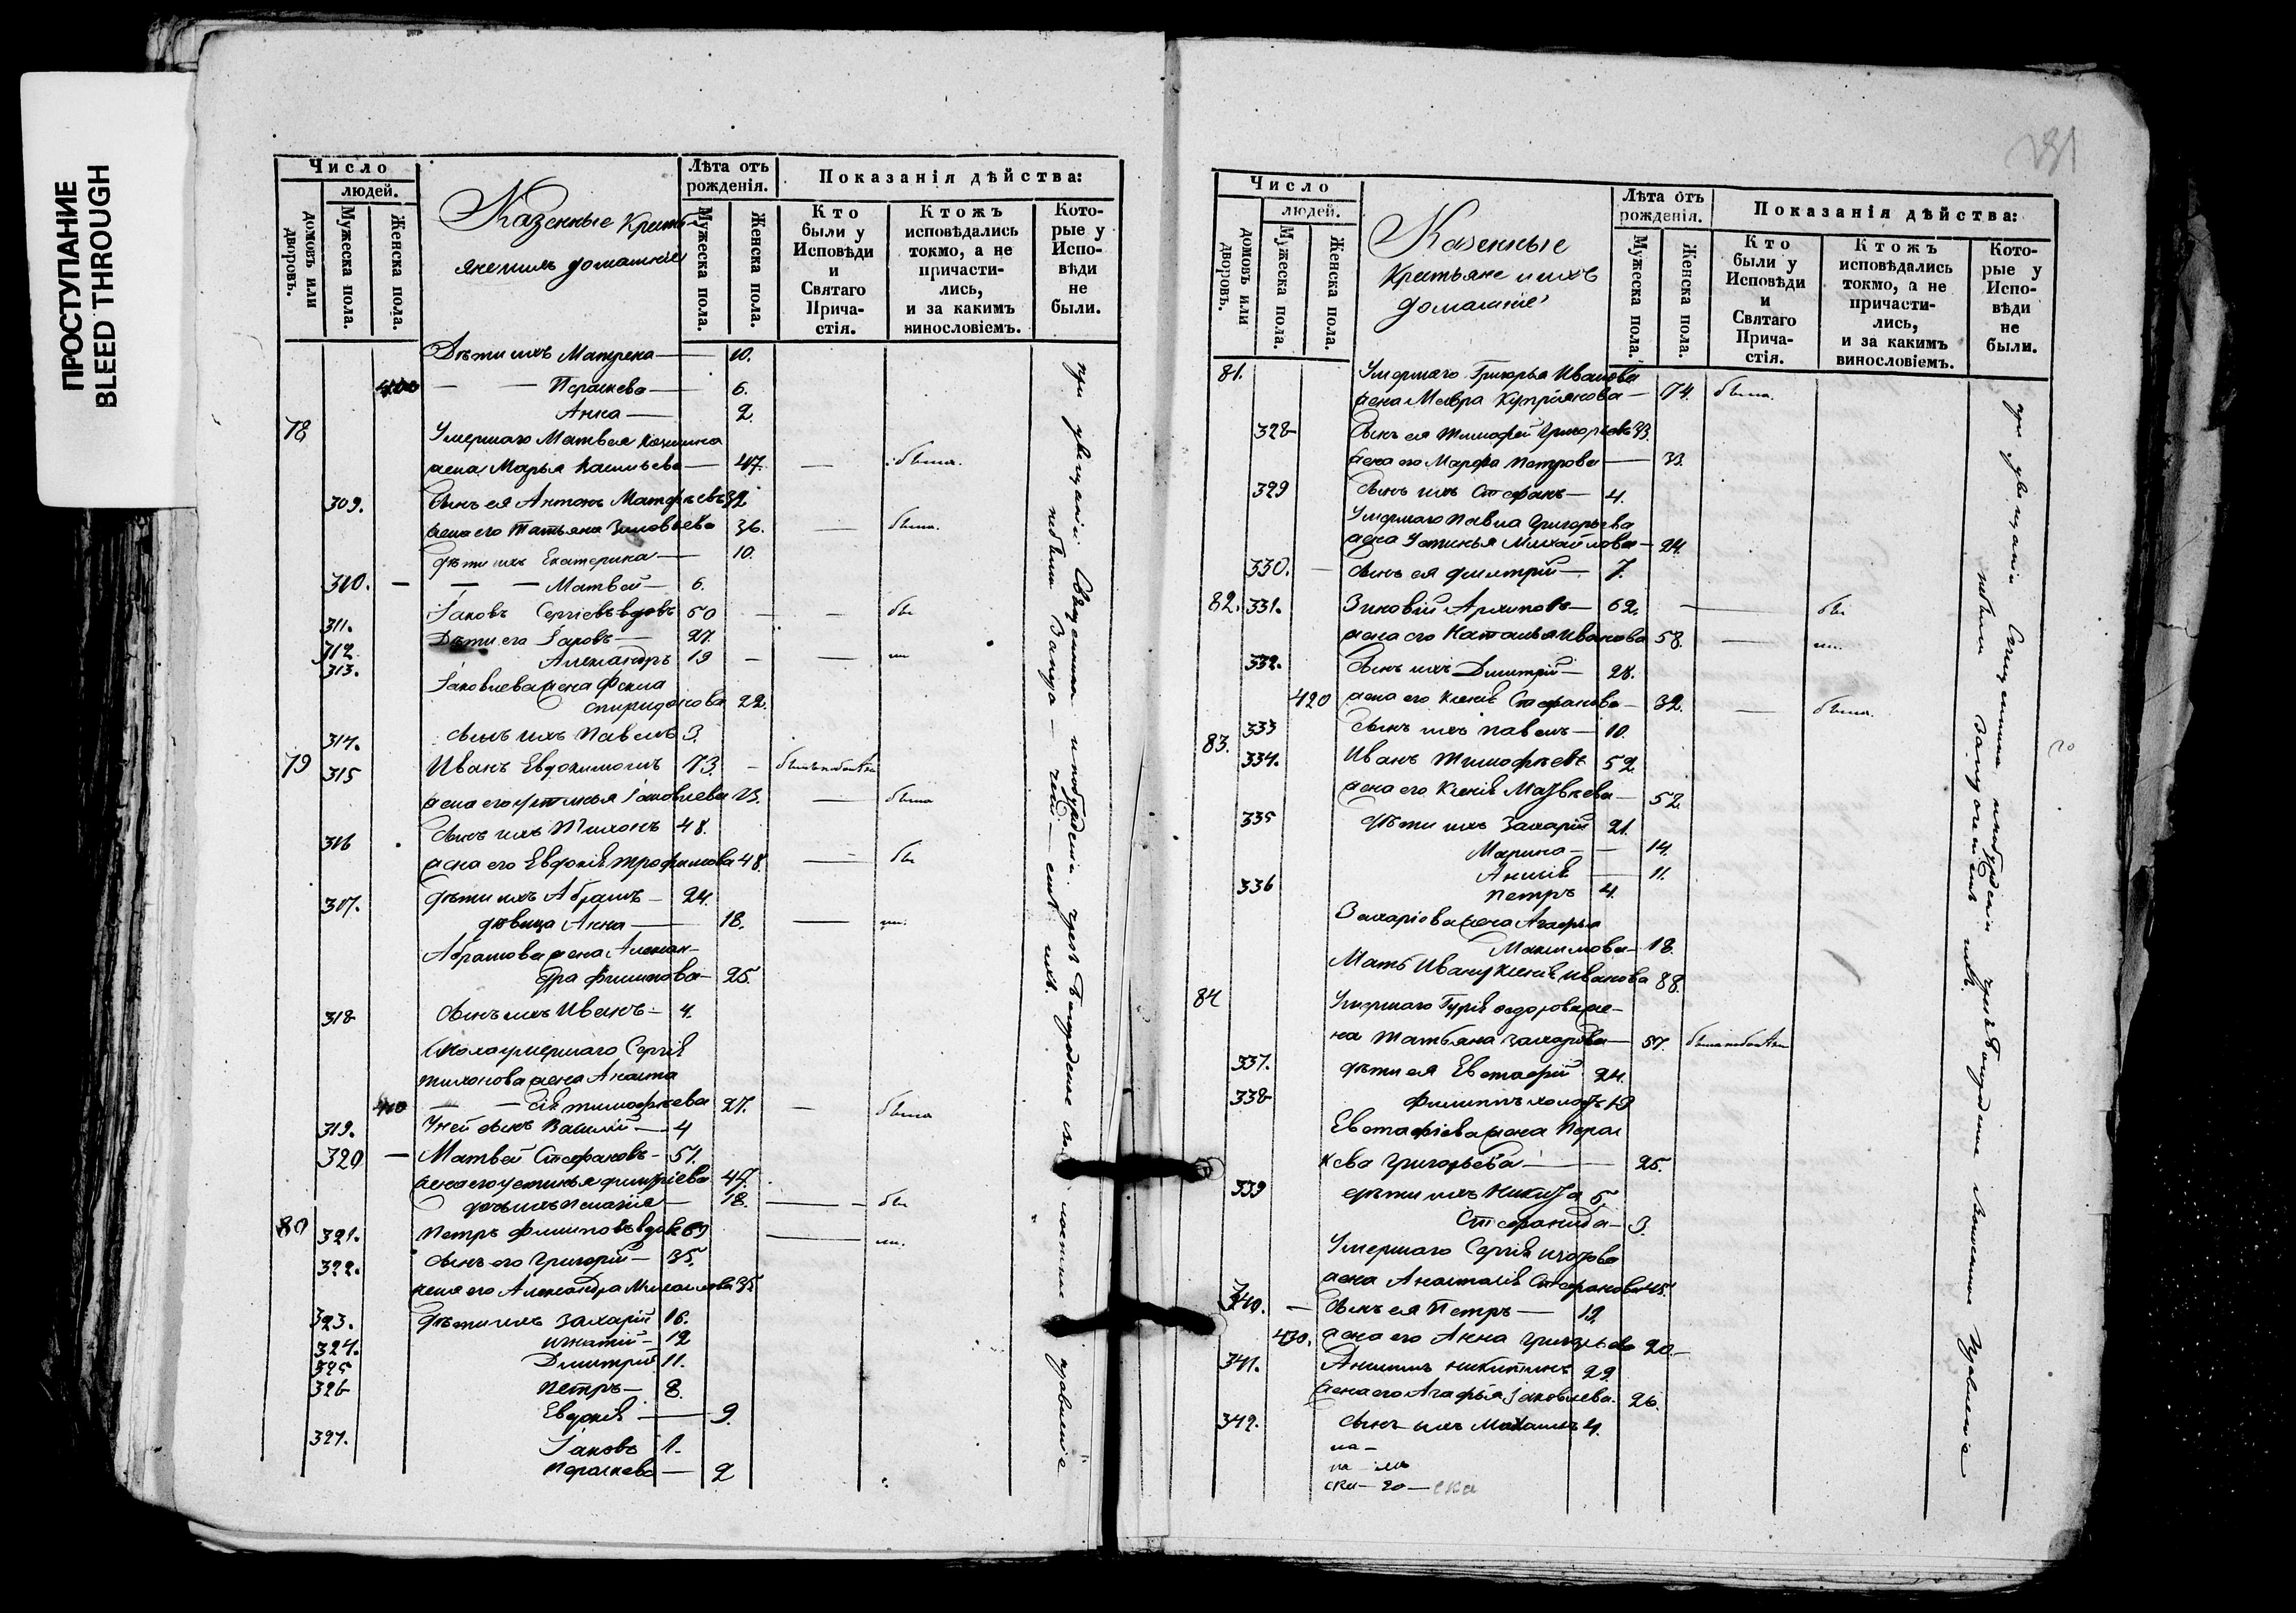 ПРОСТУПАНИЕ
BLEED THROUGH
Число
людей.
домовъ или дворовъ.
Мужеска пола.
Женска пола.
Казенные Кресть-
яне и ихъ домашніе
Лѣта отъ рожденія.
Мужеска пола.
Женска пола.
Показанія дѣйства:
Кто были у Исповѣди и Святаго Прича-стія.
Ктожъ исповѣдались токмо, а не причасти-лись, и за какимъ винословіемъ.
Кото-рые у Испо-вѣди не были.
Дѣти ихъ Матрена — 10.
400 — — Параскева — 6.
Анна — 2.
78 Умершаго Матвея
жена Марья Васильева — 47. — была.
309. Сынъ ея Антонъ Матфѣевъ 32
жена его Татьяна Зиновьева 36. — была.
дѣти ихъ Екатерина — 10.
310. — — — Матвей — 6.
311. Іаковъ Сергіевъ вдовъ 50 — — бы
312 Дѣти его Іаковъ — 27.
313. Александръ 19 — —
Іаковлева жена Фекла
Спиридонова 22.
314. Сынъ ихъ Павелъ 3.
79 315 Иванъ Евдокимовъ 73. —
жена его Устинья Іаковлева 73. — была
316 Сынъ ихъ Тихонъ 48.
жена его Евдокія Трофимова 48. — бы
317. дѣти ихъ Абрамъ — 24.
дѣвица Анна — 18. —
Абрамова жена Алексан-
дра Филипова — 25.
318 Сынъ ихъ Иванъ — 4.
умершаго Сергія
Тихонова жена Анаста
410 — — сія Тимофѣева 27. — была
319. У ней сынъ Василій — 4
320 — Матвей Стефановъ — 51.
жена его Устинья Димитріева 47.
дочь ихъ Пелагія — 18. — бы
80 321. Петръ Филиповъ вдовъ 69 —
322. Сынъ его Григорій — 35.
жена его Александра Михаилова 35
323. Дѣти ихъ Захарій 16.
324. Игнатій — 12
325 Димитрій 11.
326 Петръ — 8.
Евдокія — 9.
327. Іаковъ 1.
Параскева — 2
при увѣщаніи Священника и побужденіи чрезъ
небыли
Правленіе
231
Число
людей.
домовъ или дворовъ.
Мужеска пола.
Женска пола.
Казенные
Крестьяне и ихъ
домашніе
Лѣта отъ рожденія.
Мужеска пола.
Женска пола.
Показанія дѣйства:
Кто были у Исповѣди и Святаго Прича-стія.
Ктожъ исповѣдались токмо, а не причасти-лись, и за какимъ винословіемъ.
Кото-рые у Испо-вѣди не были.
81. Умершаго Григорья Иванова
жена Мавра Купріянова — 74. была.
328 Сынъ ея Тимофей Григорьевъ 33.
жена его Марфа Петрова — 33.
329 Сынъ ихъ Стефанъ — 4.
Умершаго Павла Григорьева
жена Устинья Михайлова — 24.
330. — Сынъ ея Димитрій — 7.
82. 331. Зиновій Архиповъ — 62. — бы
жена его Наталья Иванова 58. —
332. Сынъ ихъ Димитрій — 28.
420 жена его Ксенія Стефанова — 32. — была.
333 Сынъ ихъ Павелъ — 10.
83. 334. Иванъ Тимофѣевъ 52
жена его Ксенія Матвѣева — 52
335 дѣти ихъ Захарій 21.
Марина — 14.
Анисія — 11.
336 Петръ 4.
Захаріева жена Агафья
Максимова — 18.
Мать Ивану Ксенія Иванова 88.
84 Умершаго Гурія Федорова же-
на Татьяна Захарова — 57.
337. дѣти ея Евстафій 24.
338 Филиппъ холостъ 19
Евстафіева жена Парас
кева Григорьева — 25.
339 дѣти ихъ Никита 5.
Стефанида — 3.
Умершаго Сергія
жена Анастасія Стефанова 45.
340. — Сынъ ея Петръ — 19.
430. жена его Анна Григорьева 20. —
341. Анисимъ Никитинъ 29.
жена его Агафья Іаковлева. 26.
342. Сынъ ихъ Михаилъ 4.
при увѣщаніи Священника и побужденіи чрезъ
небыли
Правленіе